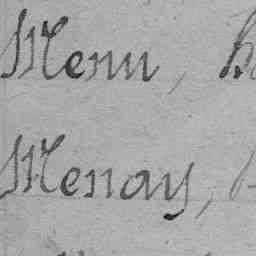 Menu,
Menay,